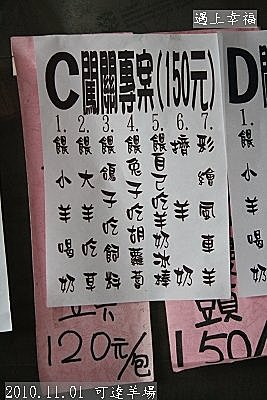 遇上幸福
C闖關專案(150元)
1.餵小羊喝奶
2.餵大羊吃草
3.餵鴿子吃飼料
4.餵兔子吃胡蘿蔔
5.餵自己吃羊奶冰棒
6.擠羊奶
7.彩繪風車羊
D
1.餵小羊喝奶
120元/包
頭
150/
2010.11.01 可達羊場